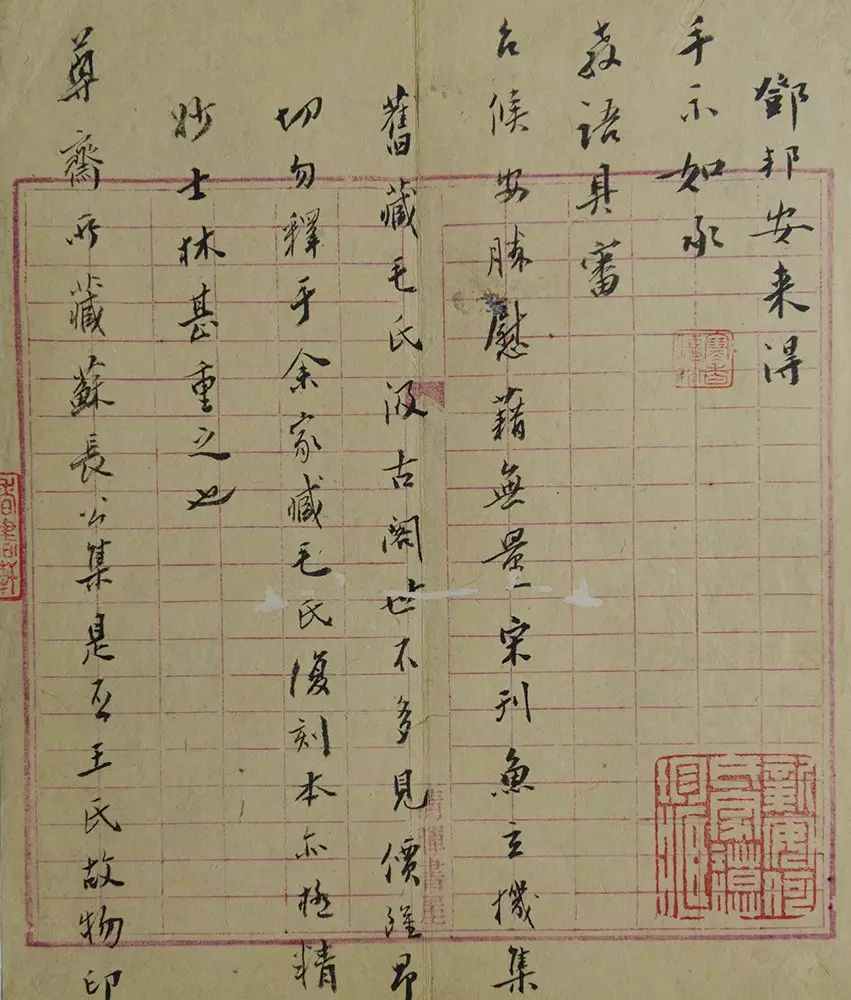 鄧邦安来得
手示如承
教語具審
台候安勝慰藉無量宋刊魚玄機集
舊藏毛氏汲古閣世不多見價雖昂
切勿釋手余家臧毛氏復刻本亦極精
妙士林甚重之也
尊齋所藏蘇長公集是否王氏故物印